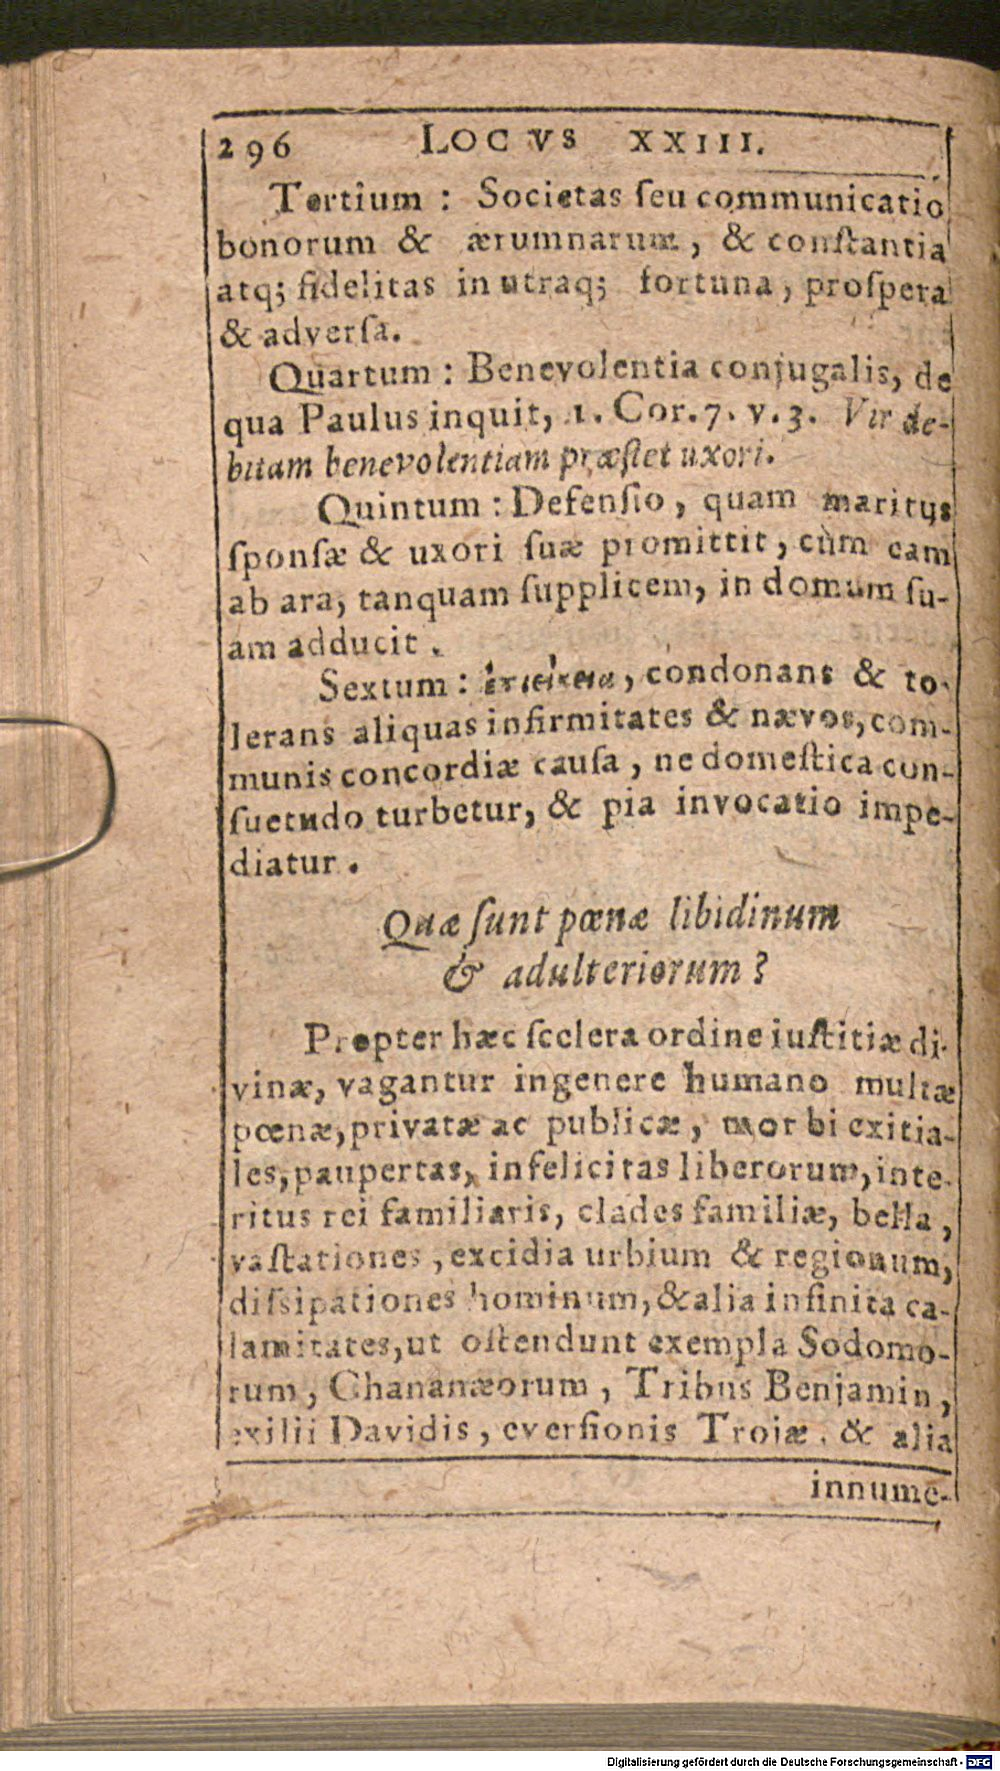 296 LOCVS XXIII.
Tertium : Societas ſeu communicatio
bonorum & ærumnarum, & conſtantia
atq; fidelitas in utraq; fortuna, proſpera
& adverſa.
Quartum : Benevolentia conjugalis, de
qua Paulus inquit, 1. Cor. 7. v. 3. Vir de-
bitam benevolentiam præſtet uxori.
Quintum : Defenſio, quam maritus
ſponſæ & uxori ſuæ promittit, cùm eam
ab ara, tanquam ſupplicem, in domum ſu-
am adducit.
Sextum : ἐπιείκεια, condonans & to-
lerans aliquas infirmitates & nævos, com-
munis concordiæ cauſa, ne domeſtica con-
ſuetudo turbetur, & pia invocatio impe-
diatur.
Quæ ſunt pœnæ libidinum
& adulteriorum?
Propter hæc ſcelera ordine iuſtitiæ di-
vinæ, vagantur in genere humano multæ
pœnæ, privatæ ac publicæ, morbi exitia-
les, paupertas, infelicitas liberorum, inte-
ritus rei familiaris, clades familiæ, bella,
vaſtationes, excidia urbium & regionum,
diſsipationes hominum, & alia infinita ca-
lamitates, ut oſtendunt exempla Sodomo-
rum, Chananæorum, Tribus Benjamin,
exilii Davidis, everſionis Troiæ, & alia
innume-
Digitalisierung gefördert durch die Deutsche Forschungsgemeinschaft - DFG